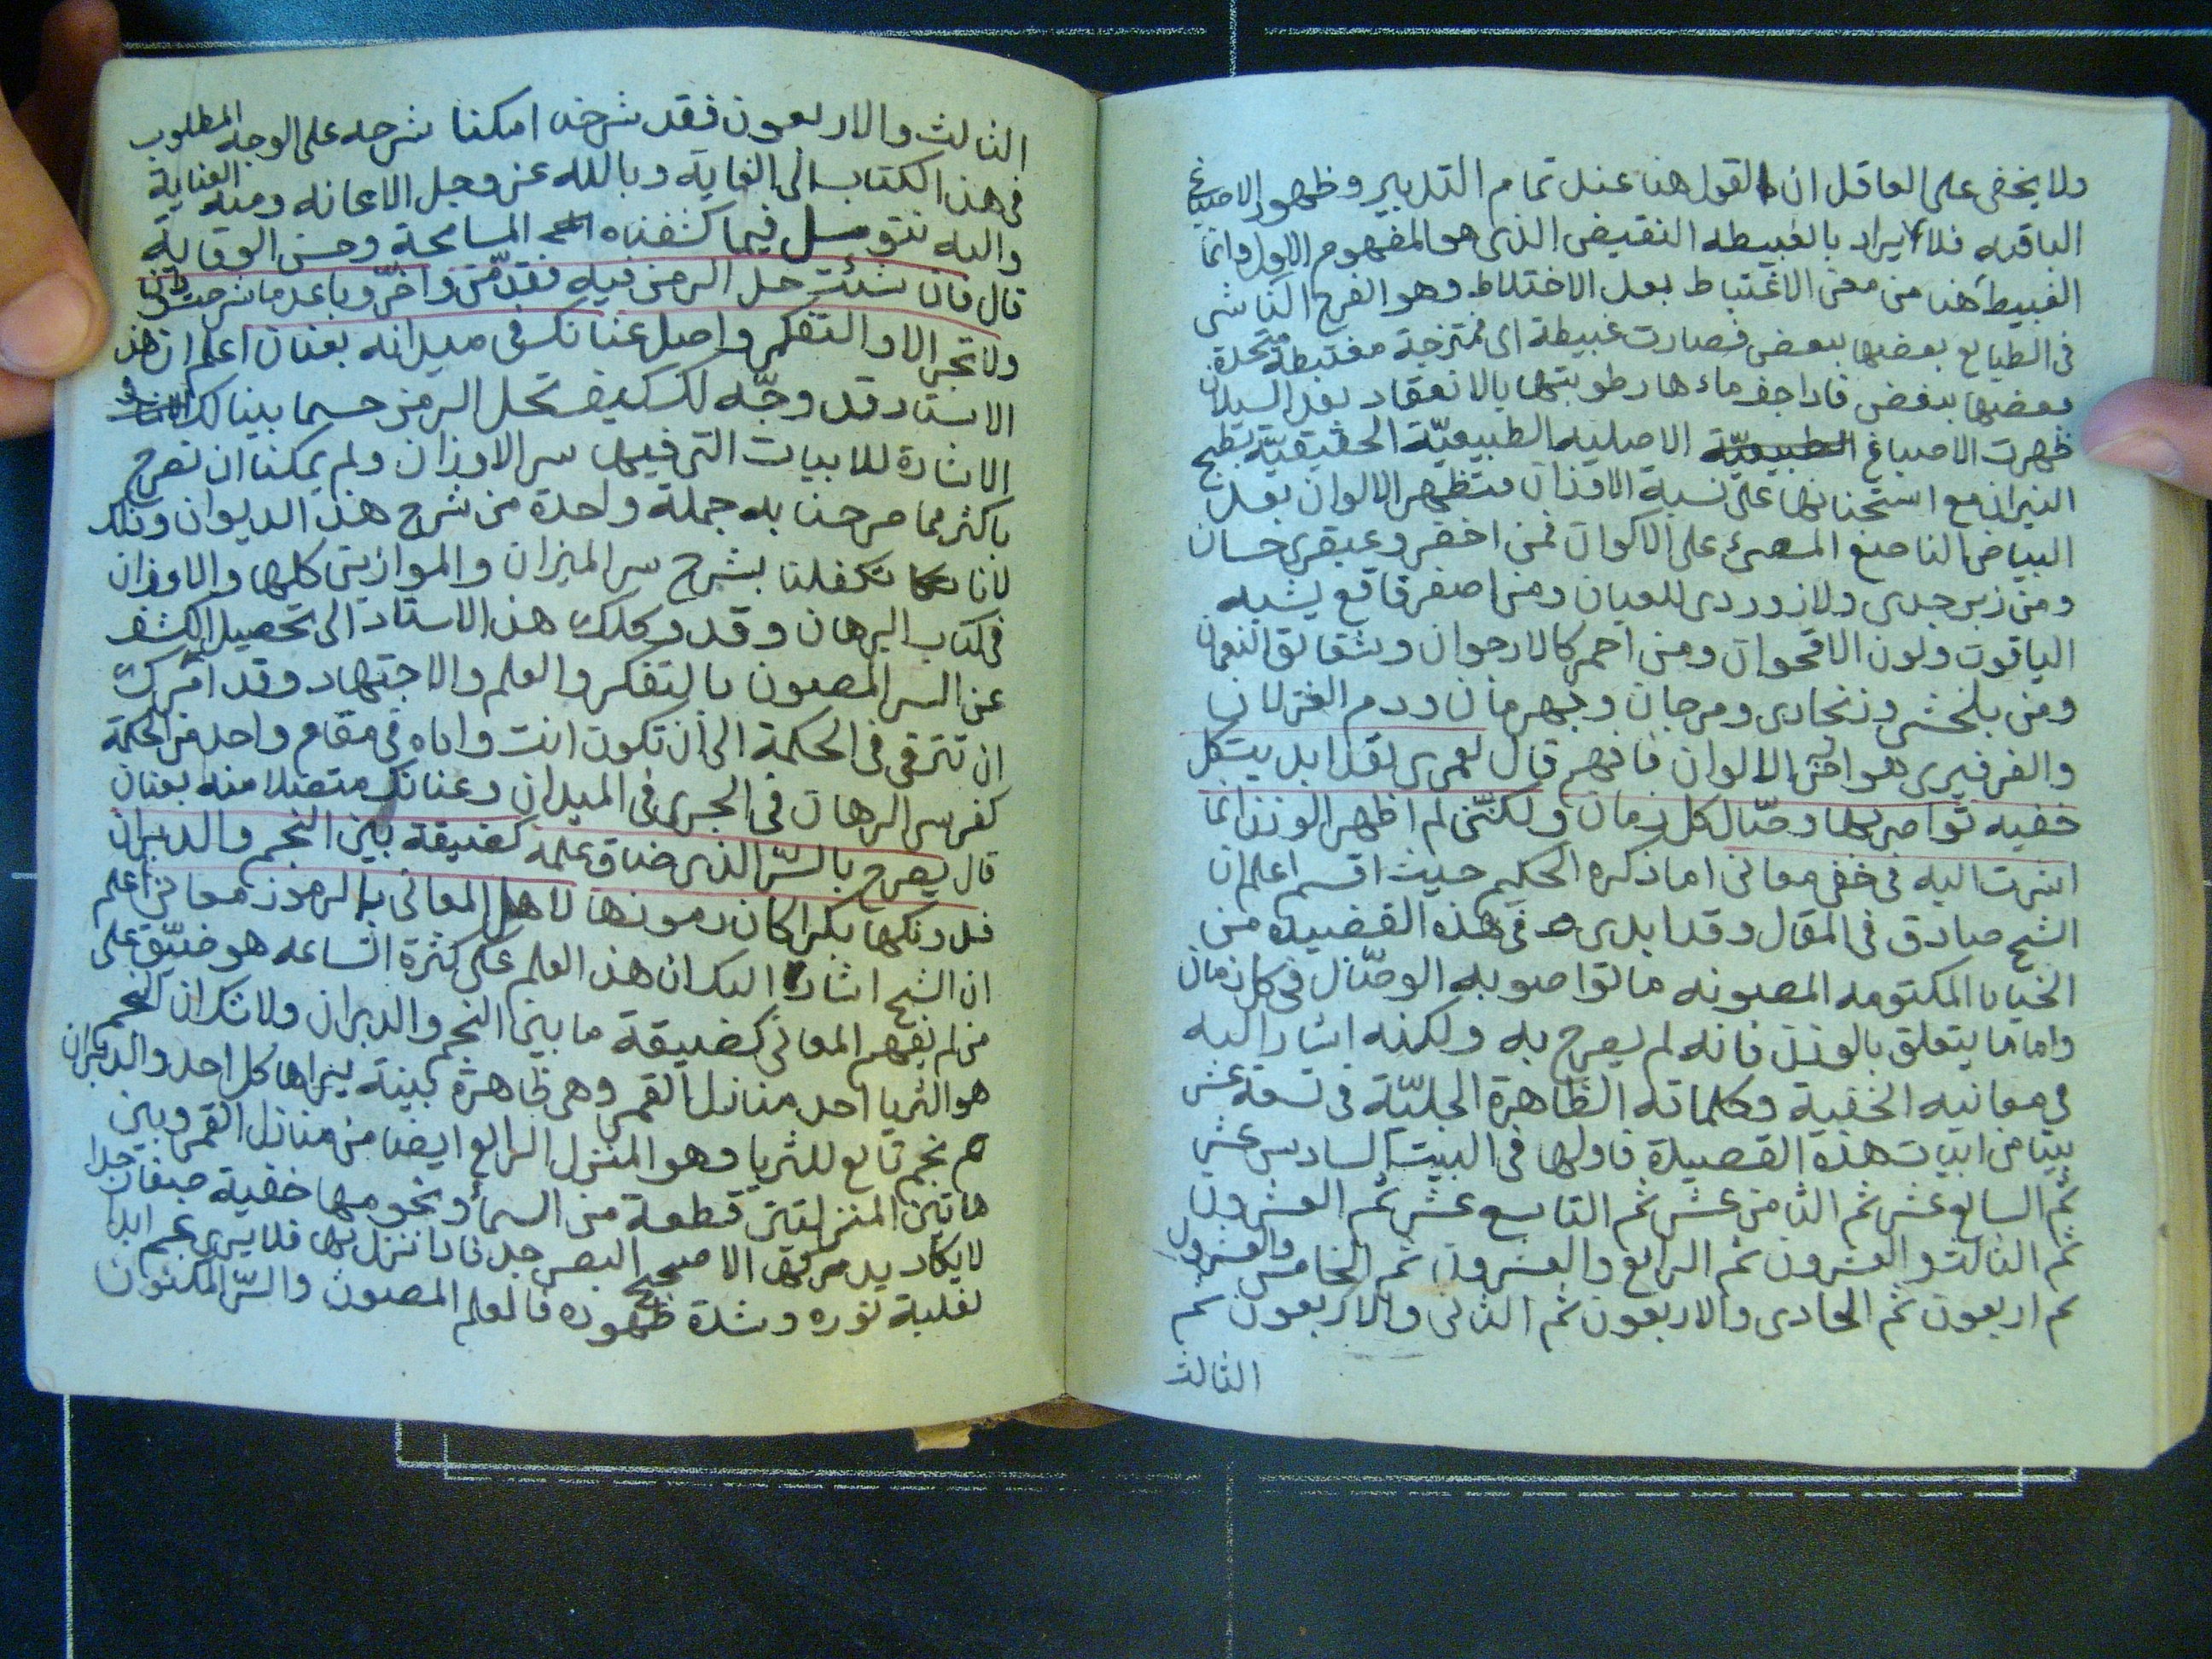 ولا يخفى على العاقل ان القول هنا عند تمام التدبير وظهور الاصباغ
الباقيه فلا يراد بالغبيطه النقيض الذى هو المفهوم الاول وانما
الغبيط هنا من معنى الاغتباط بعد الاختلاط وهو الفرح الناشى
فى الطبايع بعضها ببعض فصارت غبيطة اى ممتزجة مغتبطة متحدة
بعضها ببعض فاذا جف ماءها رطوبتها بالانعقاد بعد السيلان
ظهرت الاصباغ الطبيعيّة الاصليه الطبيعيّة الحقيقيّة بطبخ
النيران مع استحنانها على نسبة الاوزان فتظهر الالوان بعد
البياض الناصع المضئ على الاكوان فمن اخضر وعبقرى حسان
ومن زبرجدى ولازوردى للعيان ومن اصفر فاقع يشبه
الياقوت ولون الاقحوان ومن احمر كالارجوان وشقائق النعمان
ومن بلخش وزنجارى ومرجان وبهرمان ودم الغزلان
والفرفيرى هو اخر الالوان فافهم قال لعمرى لقد ابديت كل
خفيه تواصى بها وصّال كل زمان ولكنّنى لم اظهر الوزن انما
اشرت اليه فى خفى معانى اما ذكره الحكيم حيث اقسم اعلم ان
الشيخ صادق فى المقال وقد ابدى فى هذه القصيده من
الخبايا المكتومه المصونه ما تواصو به الوصّال فى كل زمان
واما ما يتعلق بالوزن فانه لم يصرح به ولكنه اشار اليه
فى معانيه الخفية وكلماته الظاهرة الجليّة فى تسعة عشر
بيتا من ابيات هذه القصيدة فاولها فى البيت السادس عشر
ثم السابع عشر ثم الثامن عشر ثم التاسع عشر ثم العشرون
ثم الثالث والعشرون ثم الرابع والعشرون ثم الخامس والعشرون
ثم اربعون ثم الحادى والاربعون ثم الثانى والاربعون ثم
الثالث
الثالث والاربعون فقد شرحنا امكننا شرحه على الوجه المطلوب
فى هذا الكتاب الى الغايه وبالله عز وجل الاعانه ومنه العناية
واليه نتوسل فيما كشفناه المسامحة وحسن الوقاية
قال فان شئت حل الرمز فيه فقدّمن واخّر وباعد ما شرحت ودان
ولا تجر الا والتفكر واصل عنانك فى ميدانه بعنان اعلم ان هذا
الاستاد قد وجّه لك كيف تحل الرمز حسبما بينا لك
الاشارة للابيات التى فيها سر الاوزان ولم يمكنا ان نصرح
باكثر مما صرحنا به جملة واحدة من شرح هذا الديوان وذلك
لانا تكفلنا بشرح سر الميزان والموازين كلها والاوزان
فى كتاب البرهان وقد وكلك هذا الاستاد الى تحصيل الكشف
عن السر المصون بالتفكر والعلم والاجتهاد وقد امرك
ان تترقى فى الحكمة الى ان تكون انت واياه فى مقام واحد من الحكمة
كفرسى الرهان فى الجرى فى الميدان وعنانك متصلا منه بعنان
قال يصرح بالسّر الذى ضاق علمه كضيقة بين النجم والدبران
فدونكها بكرا كان رموزها لاهل المعانى بالرموز معانى اعلم
ان الشيخ اشار اليك ان هذا العلم على كثرة اتساعه هو ضيّق على
من لم يفهم المعانى كضيقة ما بين النجم والدبران ولا شك ان النجم
هو الثريا احد منازل القمر وهى ظاهرة بينة يراها كل احد والدبران
هم نجم تابع للثريا وهو المنزل الرابع ايضا من منازل القمر وبين
هاتين المنزلتين قطعة من السمآ ونجومها خفية صغار جدا
لا يكاد يدركها الا صحيح البصر جدا فاذا نزل بها فلا يرى نجم ابدا
لغلبة نوره وشدة ظهوره فالعلم المصون والسّر المكنون